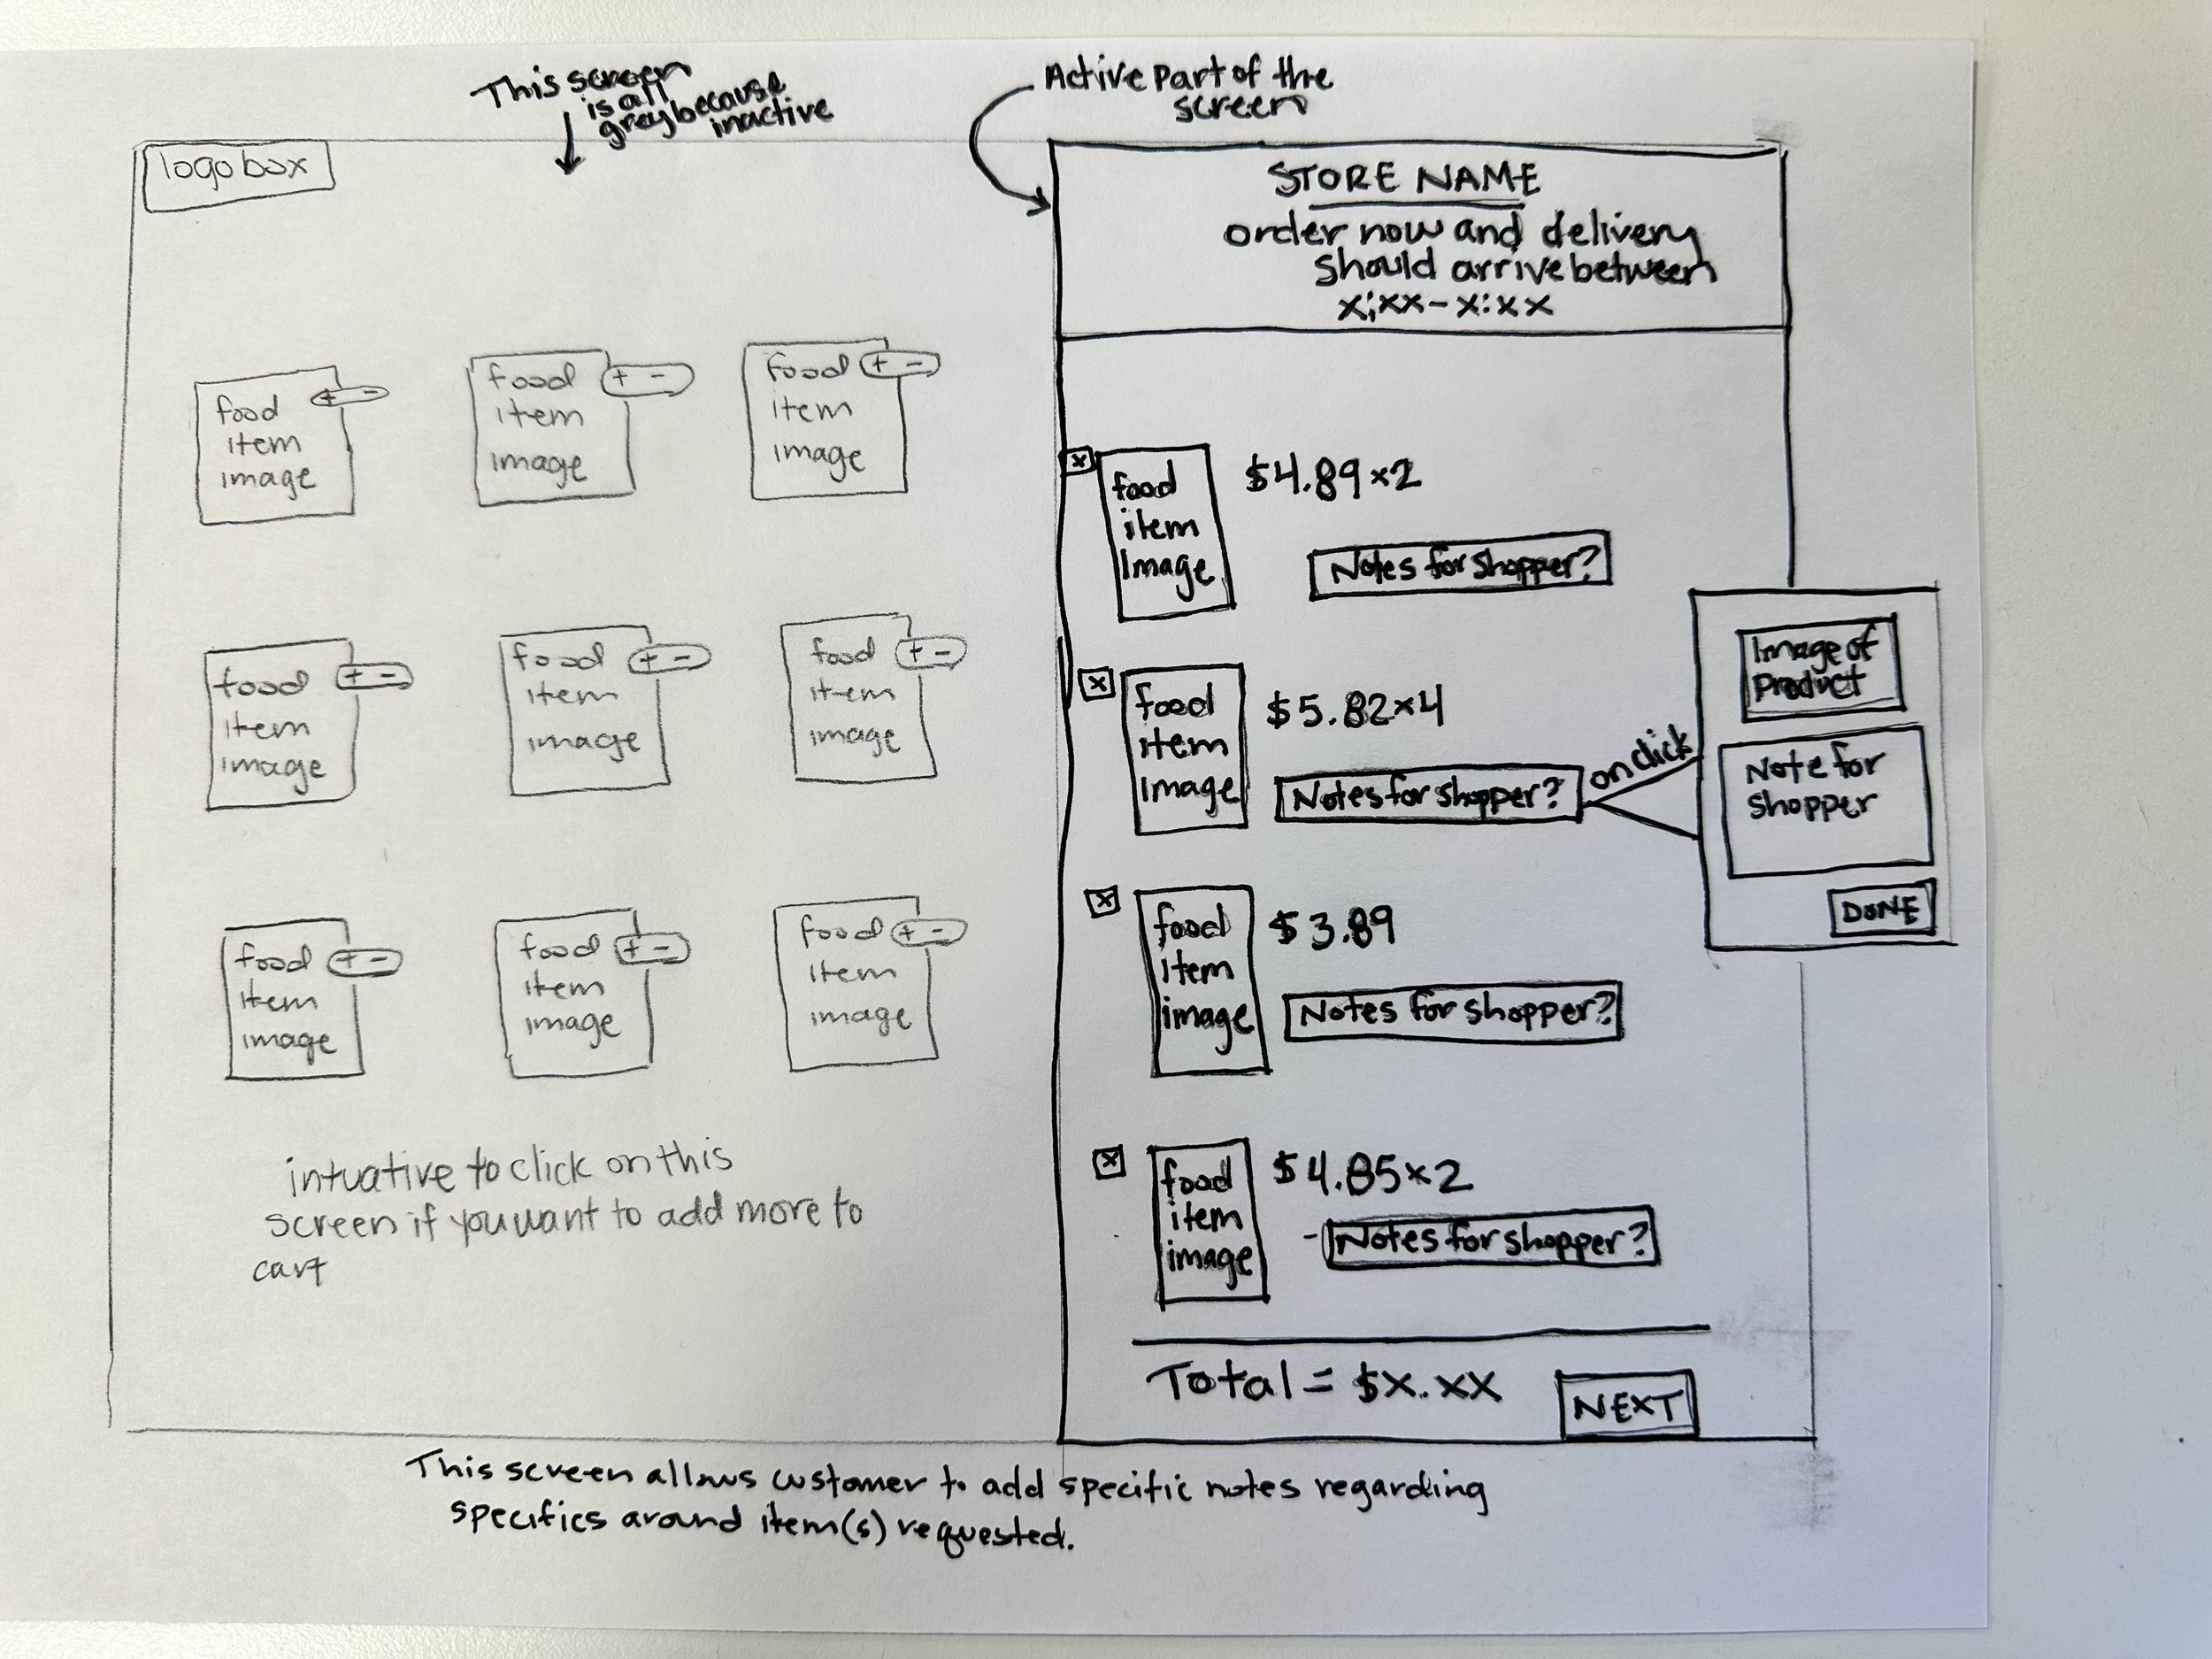 This screen
is all
grey because
inactive
Active part of the
screen
logo box
food
item
image
+ -
food
item
image
+ -
food
item
image
+ -
food
item
image
+ -
food
item
image
+ -
food
item
image
+ -
food
item
image
+ -
food
item
image
+ -
food
item
image
+ -
intuative to click on this
screen if you want to add more to
cart
STORE NAME
order now and delivery
should arrive between
x:xx - x:xx
x
food
item
Image
$4.89 x2
Notes for shopper?
x
food
item
image
$5.82 x4
Notes for shopper?
on click
Image of
Product
Note for
shopper
DONE
x
food
item
image
$3.89
Notes for shopper?
x
food
item
image
$4.85 x2
- Notes for shopper?
Total = $x.xx
NEXT
This screen allows customer to add specific notes regarding
specifics around item(s) requested.